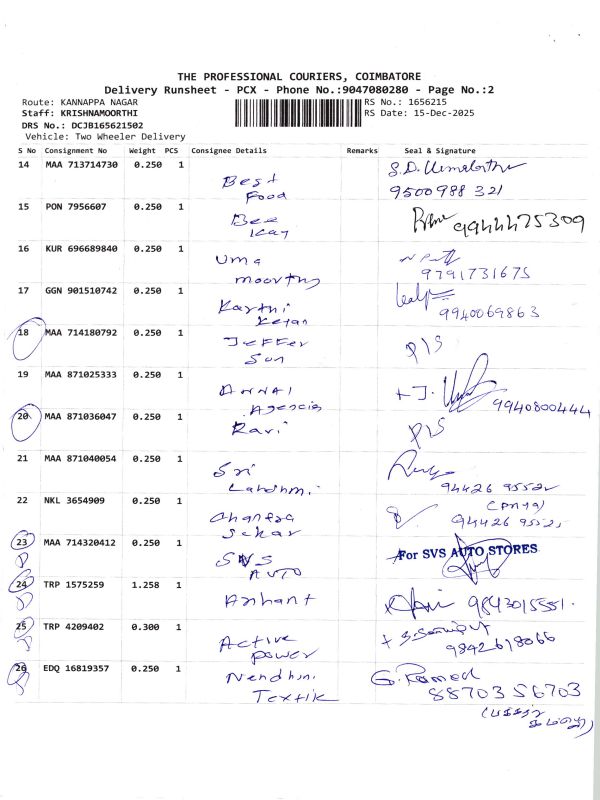 THE PROFESSIONAL COURIERS, COIMBATORE
Delivery Runsheet - PCX - Phone No.:9047080280 - Page No.:2
Route: KANNAPPA NAGAR RS No.: 1656215
Staff: KRISHNAMOORTHI RS Date: 15-Dec-2025
DRS No.: DCJB165621502
Vehicle: Two Wheeler Delivery
S No Consignment No Weight PCS Consignee Details Remarks Seal & Signature
14 MAA 713714730 0.250 1 Best Food 9500988 321
15 PON 7956607 0.250 1 Bee Kay 9944475309
16 KUR 696689840 0.250 1 Uma moorthy 9791731675
17 GGN 901510742 0.250 1 Karthi 9940069863
18 MAA 714180792 0.250 1 Jeffer Son P/S
19 MAA 871025333 0.250 1 Annai Agencis 9940800444
20 MAA 871036047 0.250 1 Ravi P/S
21 MAA 871040054 0.250 1 Sri 94426 95521
22 NKL 3654909 0.250 1 94426 95521
23 MAA 714320412 0.250 1 SVS Auto For SVS AUTO STORES
24 TRP 1575259 1.258 1 Arihant 9843015551.
25 TRP 4209402 0.300 1 Active power 9842618066
26 EDQ 16819357 0.250 1 8870356703